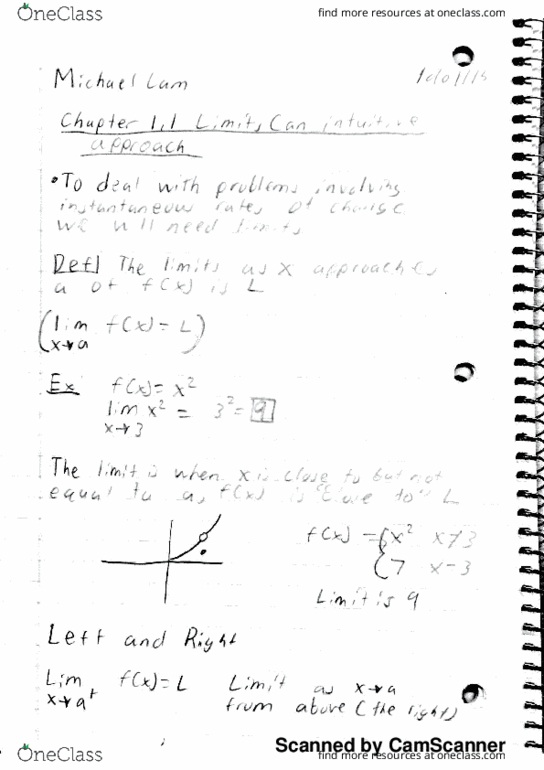 OneClass
find more resources at oneclass.com
Michael Lam
Chapter 1.1 Limits Can intuitive
approach
•To deal with problems involving
instantaneous rates of change
we will need limits
Def| The limits as x approaches
a of f(x) is L
(lim f(x) = L)
x→a
Ex f(x) = x²
lim x² = 3² = 9
x→3
The limit is when x is close to but not
equal to a, f(x) is "close to" L
f(x) = {x² x≠3
{7 x=3
Limit is 9
Left and Right
Lim f(x) = L Limit as x→a
x→a⁺ from above (the right)
Scanned by CamScanner
OneClass
find more resources at oneclass.com